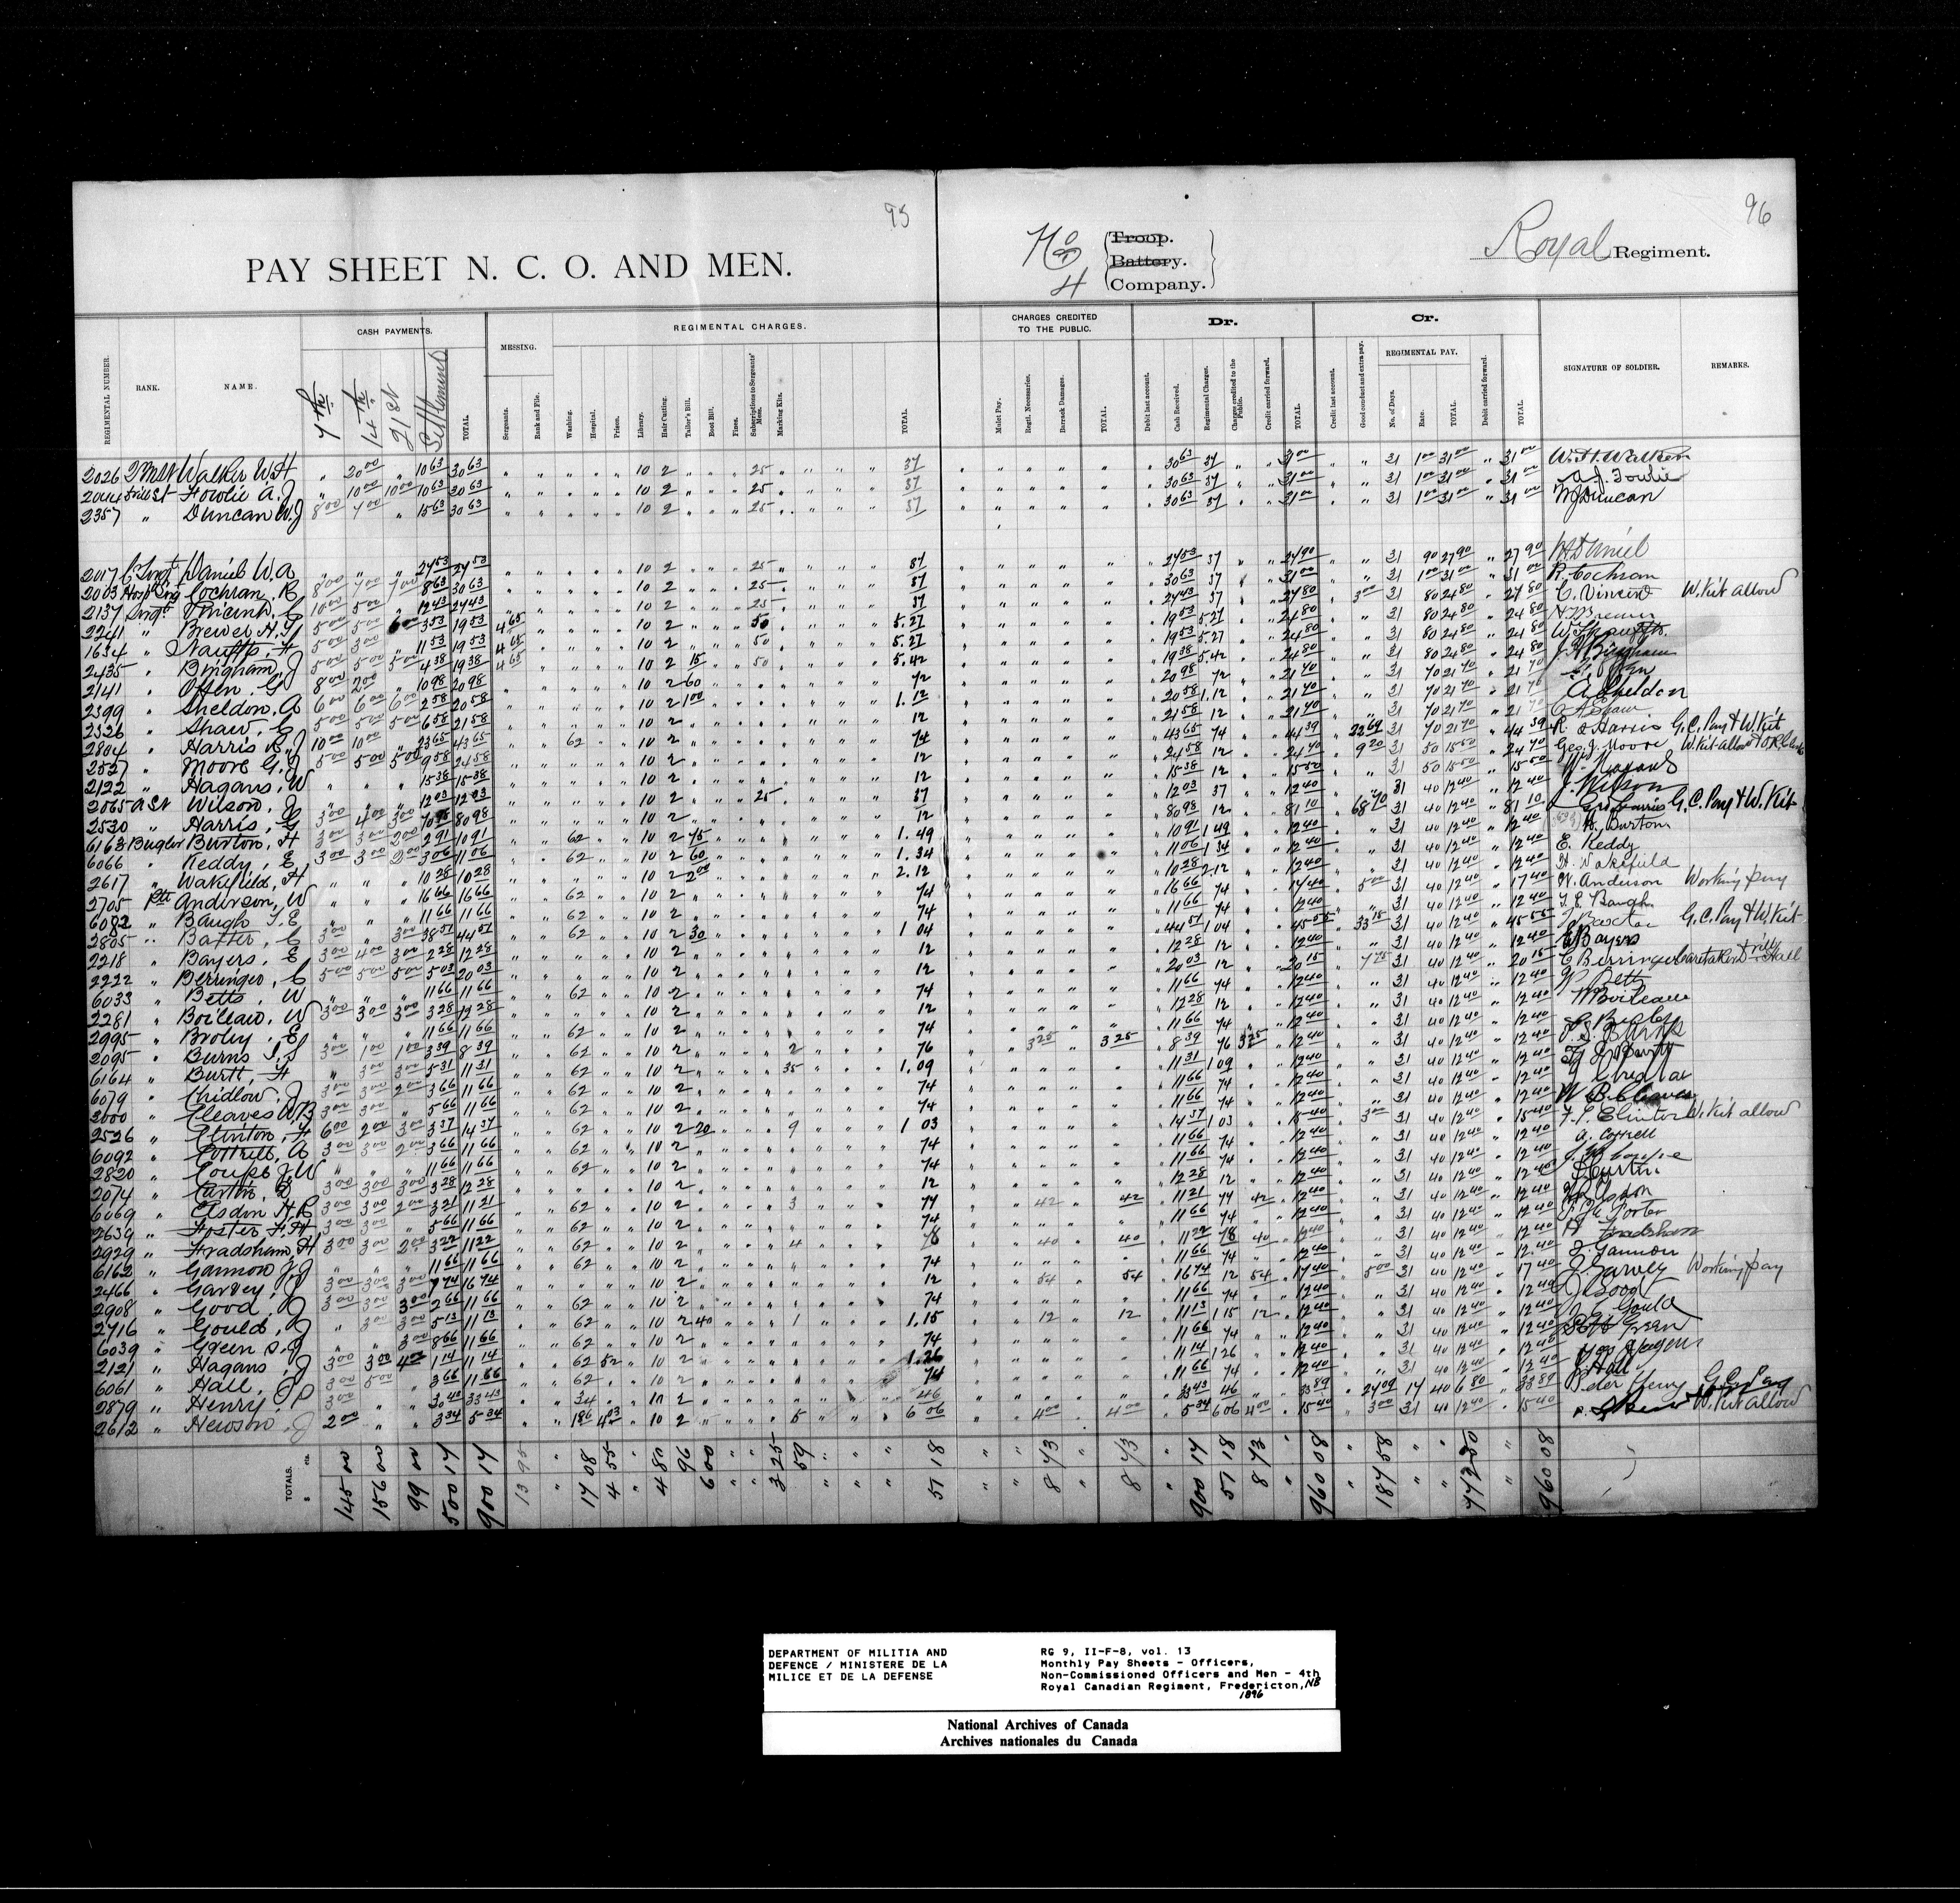 95
96
PAY SHEET N. C. O. AND MEN.
No 4
Troop.
Battery.
Company.
Royal Regiment.
REGIMENTAL NUMBER. RANK. NAME. CASH PAYMENTS. MESSING. REGIMENTAL CHARGES. CHARGES CREDITED TO THE PUBLIC. Dr. Cr. SIGNATURE OF SOLDIER. REMARKS.
7th 14th 21st Settlement TOTAL. Sergeants. Rank and File. Washing. Hospital. Prison. Library. Hair Cutting. Tailor's Bill. Boot Bill. Fines. Subscriptions to Sergeants' Mess. Marking Kits. TOTAL. Mulct Pay. Regtl. Necessaries. Barrack Damages. TOTAL. Debit last account. Cash Received. Regimental Charges. Charges credited to the Public. Credit carried forward. TOTAL. Credit last account. Good conduct and extra pay. REGIMENTAL PAY. No. of Days. Rate. TOTAL. Debit carried forward. TOTAL.
2026 Walker W.H " 20 00 " 10 63 30 63 10 2 25 37 30 63 37 31 00 31 1 00 31 00 31 00 W.H. Walker
2044 Fowlie A.J " 10 00 10 00 10 63 30 63 10 2 25 37 30 63 37 31 00 31 1 00 31 00 31 00 A.J. Fowlie
2357 " Duncan W.J 8 00 7 00 " 15 63 30 63 10 2 25 37 30 63 37 31 00 31 1 00 31 00 31 00 W.J Duncan
2017 C Sergt Daniel W.A " " " 24 53 24 53 10 2 25 37 24 53 37 24 90 31 90 27 90 27 90
2003 Hosp Srg Cochran. R 8 00 7 00 7 00 8 63 30 63 10 2 25 37 30 63 37 31 00 31 1 00 31 00 31 00 R. Cochran
2137 Sergt Vincent, C 10 00 5 00 " 12 43 24 43 10 2 25 37 24 43 37 24 80 3 00 31 80 24 80 27 80 C. Vincent W. Kit allow
2241 " Brewer H. 5 00 5 00 6 00 3 53 19 53 4 65 10 2 50 5.27 19 53 5.27 24 80 31 80 24 80 24 80
1634 " 5 00 3 00 " 11 53 19 53 4 65 10 2 50 5.27 19 53 5.27 24 80 31 80 24 80 24 80
2435 " Bingham, J 5 00 5 00 5 00 4 38 19 38 4 65 10 2 15 50 5.42 19 38 5.42 24 80 31 80 24 80 24 80
2141 " Offen, G 8 00 2 00 " 10 98 20 98 10 2 60 72 20 98 72 21 70 31 70 21 70 21 70
2399 " Sheldon, A 6 00 6 00 6 00 2 58 20 58 10 2 1 00 1.12 20 58 1.12 21 70 31 70 21 70 21 70 A. Sheldon
2326 " Shaw, C 5 00 5 00 5 00 6 58 21 58 10 2 12 21 58 12 21 70 31 70 21 70 21 70 C A Shaw
2804 " Harris R.J 10 00 10 00 " 23 65 43 65 62 10 2 74 43 65 74 44 39 22 69 31 70 21 70 44 39 R J Harris G.C. Pay & W. Kit
2527 " Moore G.J 5 00 5 00 5 00 9 58 24 58 10 2 12 24 58 12 24 70 9 20 31 50 15 50 24 70 Geo. J. Moore
2122 " Hagans, W " " " 15 38 15 38 10 2 12 15 38 12 15 50 31 50 15 50 15 50
2065 Wilson, J " " " 12 03 12 03 10 2 25 37 12 03 37 12 40 31 40 12 40 12 40 J. Wilson
2530 " Harris, G 3 00 4 00 3 00 70 98 80 98 10 2 12 80 98 12 81 10 68 70 31 40 12 40 81 10 G.C. Pay & W. Kit
6163 Bugler Burton, H 3 00 3 00 2 00 2 91 10 91 62 10 2 75 1.49 10 91 1 49 12 40 31 40 12 40 12 40 H. Burton
6066 " Keddy, E 3 00 3 00 2 00 3 06 11 06 62 10 2 60 1.34 11 06 1 34 12 40 31 40 12 40 12 40 E. Keddy
2617 " Wakefield, H " " " 10 28 10 28 10 2 2 00 2.12 10 28 2.12 12 40 31 40 12 40 12 40 H. Wakefield
2705 Pte Anderson, W " " " 16 66 16 66 62 10 2 74 16 66 74 17 40 5 00 31 40 12 40 17 40 W. Anderson Working pay
6082 " Baugh T. E " " " 11 66 11 66 62 10 2 74 11 66 74 12 40 31 40 12 40 12 40 T. E. Baugh
2805 " Baxter, C 3 00 " 3 00 38 51 44 51 62 10 2 30 1 04 44 51 1 04 45 55 33 15 31 40 12 40 45 55 G.C. Pay & W. Kit
2218 " Bayers, E 3 00 4 00 3 00 2 28 12 28 10 2 12 12 28 12 12 40 31 40 12 40 12 40 E Bayers
2222 " Berringer, C 5 00 5 00 5 00 5 03 20 03 10 2 12 20 03 12 20 15 7 75 31 40 12 40 20 15 C Berringer Caretaker Drill Hall
6033 " Betts, W " " " 11 66 11 66 62 10 2 74 11 66 74 12 40 31 40 12 40 12 40 W Betts
2281 " Boileau, W 3 00 3 00 3 00 3 28 12 28 10 2 12 12 28 12 12 40 31 40 12 40 12 40 W Boileau
2995 " " " " 11 66 11 66 62 10 2 74 11 66 74 12 40 31 40 12 40 12 40
2095 " Burns T.S 3 00 1 00 1 00 3 39 8 39 62 10 2 2 76 3 25 3 25 8 39 76 3 25 12 40 31 40 12 40 12 40
6164 " Burtt, H " 3 00 3 00 5 31 11 31 62 10 2 35 1.09 11 31 1 09 12 40 31 40 12 40 12 40
6079 " Chidlow, J 3 00 3 00 2 00 3 66 11 66 62 10 2 74 11 66 74 12 40 31 40 12 40 12 40
2000 " Cleaves W.B 3 00 3 00 " 5 66 11 66 62 10 2 74 11 66 74 12 40 31 40 12 40 12 40 W. B. Cleaves
2526 " Clinton, F 6 00 2 00 3 00 3 37 14 37 62 10 2 20 9 1 03 14 37 1 03 15 40 3 00 31 40 12 40 15 40 Clinton W. Kit allow
6092 " Cottrell, A 3 00 3 00 2 00 3 66 11 66 62 10 2 74 11 66 74 12 40 31 40 12 40 12 40 A. Cottrell
2820 " Coupe J.W " " " 11 66 11 66 62 10 2 74 11 66 74 12 40 31 40 12 40 12 40
2074 " 3 00 3 00 3 00 3 28 12 28 10 2 12 12 28 12 12 40 31 40 12 40 12 40
6069 " Elsdon H.R 3 00 3 00 2 00 3 21 11 21 62 10 2 3 77 42 42 11 21 77 42 12 40 31 40 12 40 12 40
2639 " Foster F.H 3 00 3 00 " 5 66 11 66 62 10 2 74 11 66 74 12 40 31 40 12 40 12 40
2929 " Fradsham, H 3 00 3 00 2 00 3 22 11 22 62 10 2 4 78 40 40 11 22 78 40 12 40 31 40 12 40 12 40 H Fradsham
6162 " Gannon J.J " " " 11 66 11 66 62 10 2 74 11 66 74 12 40 31 40 12 40 12.40 J. Gannon
2466 " Garvey, J 3 00 3 00 3 00 7 74 16 74 10 2 12 54 54 16 74 12 54 17 40 5 00 31 40 12 40 17 40 J. Garvey Working pay
2908 " Good, J 3 00 3 00 3 00 2 66 11 66 62 10 2 74 11 66 74 12 40 31 40 12 40 12 40 J. Good
2716 " Gould, J " 3 00 3 00 5 13 11 13 62 10 2 40 1 1.15 12 12 11 13 1 15 12 12 40 31 40 12 40 12 40 Gould
6039 " Green S.J " " 3 00 8 66 11 66 62 10 2 74 11 66 74 12 40 31 40 12 40 12 40 Green
2121 " Hagans, J 3 00 3 00 4 00 1 14 11 14 62 52 10 2 1.26 11 14 1 26 12 40 31 40 12 40 12 40 Jas Hagans
6061 " Hall, J 3 00 5 00 " 3 66 11 66 62 10 2 74 11 66 74 12 40 31 40 12 40 12 40 J Hall
2879 " Henry, P 3 00 " " 30 43 33 43 34 10 2 46 33 43 46 33 89 27 09 17 40 6 80 33 89 Peter Henry G.C. Pay
2612 " Hewson, J 2 00 " " 3 34 5 34 1 86 4 03 10 2 5 6 06 4 00 4 00 5 34 6 06 4 00 15 40 3 00 31 40 12 40 15 40 W. Kit allow
TOTALS. $ cts. 145 00 156 00 99 00 500 17 900 17 13 95 17 08 4 55 4 80 96 6 00 3 25 59 51 18 8 73 8 73 900 17 51 18 8 73 960 08 187 58 772 50 960 08
DEPARTMENT OF MILITIA AND
DEFENCE / MINISTERE DE LA
MILICE ET DE LA DEFENSE
RG 9, II-F-8, vol. 13
Monthly Pay Sheets - Officers,
Non-Commissioned Officers and Men - 4th
Royal Canadian Regiment, Fredericton, NB
1896
National Archives of Canada
Archives nationales du Canada